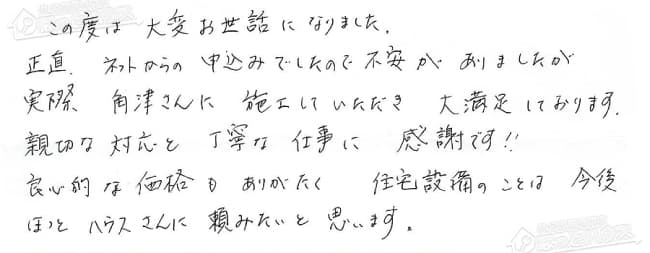 この度は 大変お世話になりました。
正直、ネットからの申込みでしたので不安がありましたが
実際、角津さんに施工していただき 大満足しております。
親切な対応と丁寧な仕事に 感謝です!!
良心的な価格もありがたく 住宅設備のことは今後
ほっとハウスさんに頼みたいと思います。